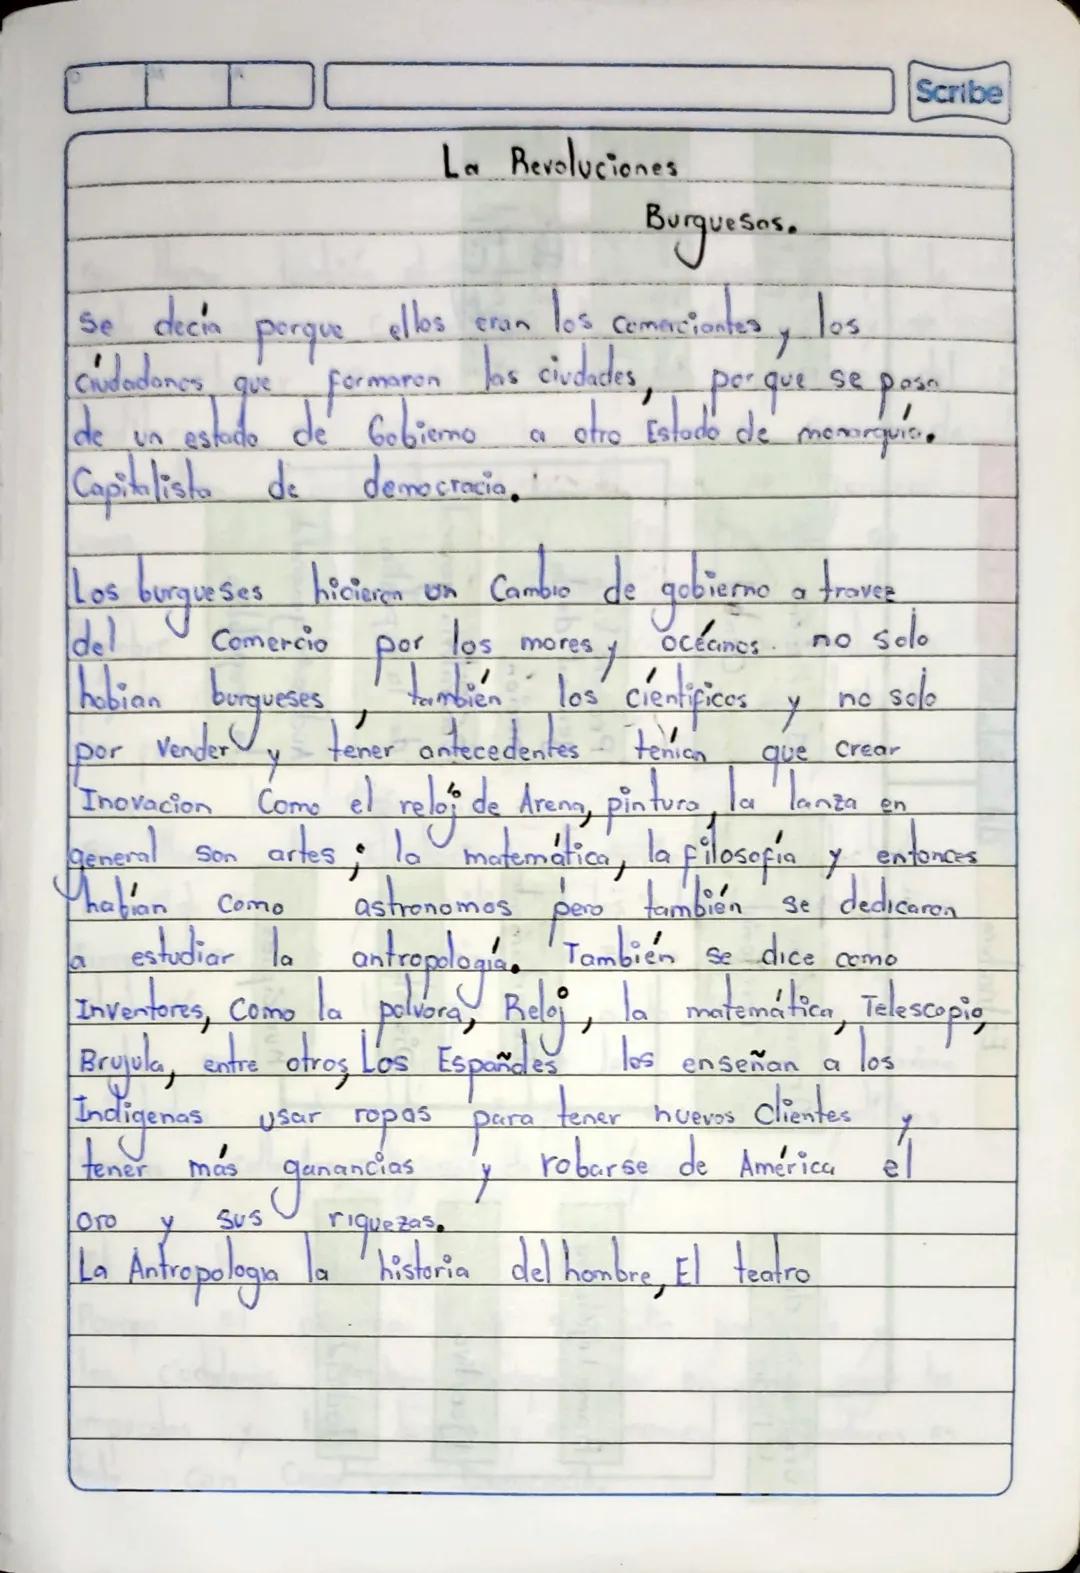 Scribe
La Revoluciones
Burguesas.
se decía porque ellos eran los comerciantes y los
ciudadanos que formaron las ciudades, por que se paso
de un estado de Gobierno a otro Estado de monarquía.
Capitalista de democracia.
Los burgueses hicieron un Cambio de gobierno a travez
del Comercio por los mares y océanos. no solo
habian burgueses, también los científicos y no solo
por vender y tener antecedentes tenían que crear
Inovacion Como el reloj de Arena, pintura, la lanza en
general son artes; la matemática, la filosofía y entonces
habían como astronomos pero también se dedicaron
a estudiar la antropología. También se dice como
Inventores, Como la polvora, Reloj, la matemática, Telescopio,
Brujula, entre otros, Los Españoles les enseñan a los
Indigenas usar ropas para tener nuevos Clientes y
tener más ganancias y robarse de América el
oro y sus riquezas.
La Antropologia la historia del hombre, El teatro